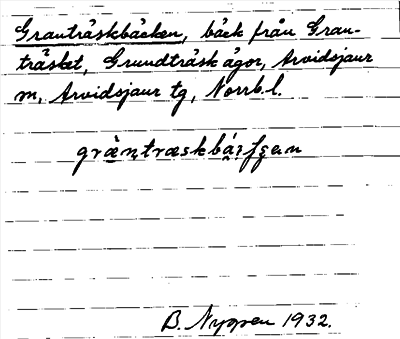 Granträskbäcken, bäck från Gran-
träsket, Grundträsk ägor, Arvidsjaur
m, Arvidsjaur tg, Norrb. l.
B. Nygren 1932.